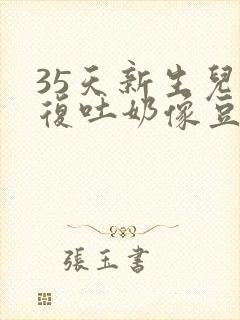 35天新生兒
復吐奶像豆
張玉書